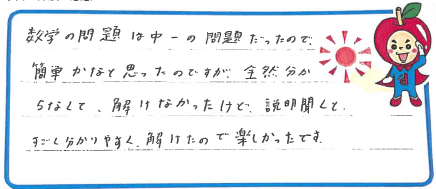 数学の問題は中一の問題だったので、
簡単かなと思ったのですが、全然分か
らなくて、解けなかったけど、説明聞くと、
すごく分かりやすく、解けたので楽しかったです。